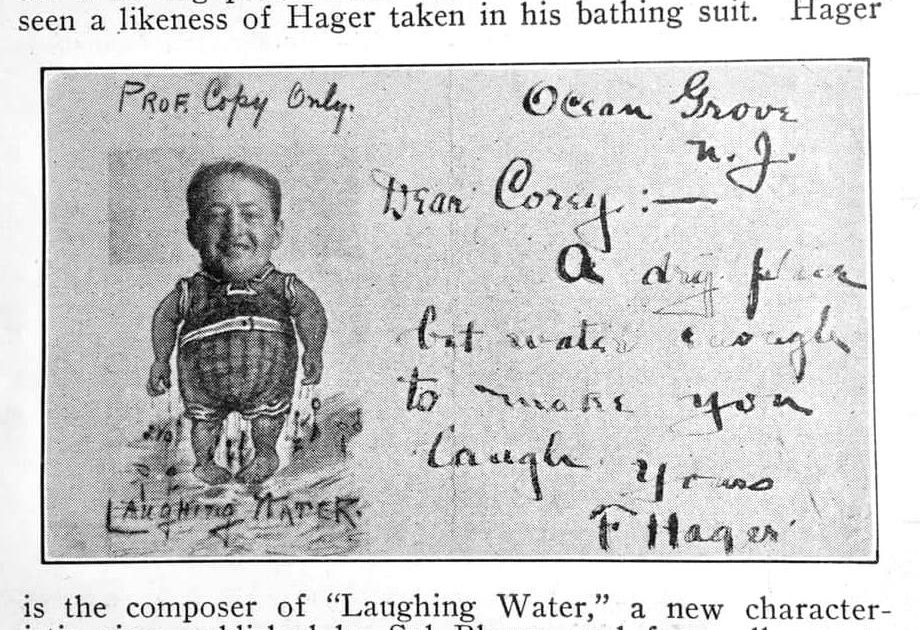 seen a likeness of Hager taken in his bathing suit. Hager
Prof. Copy Only.
Ocean Grove
N. J.
Dear Corey :—
A dry place
but water enough
to make you
laugh. Yours
F Hager
Laughing Water.
is the composer of “Laughing Water,” a new character-